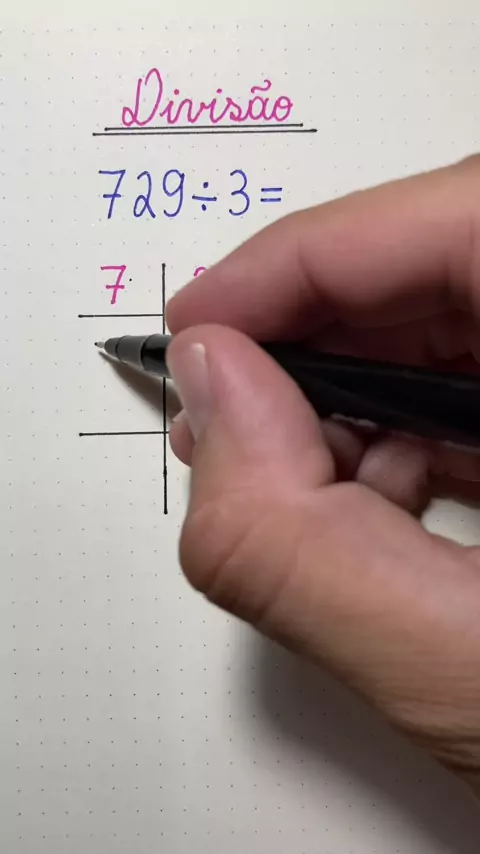 Divisão
729÷3=
7